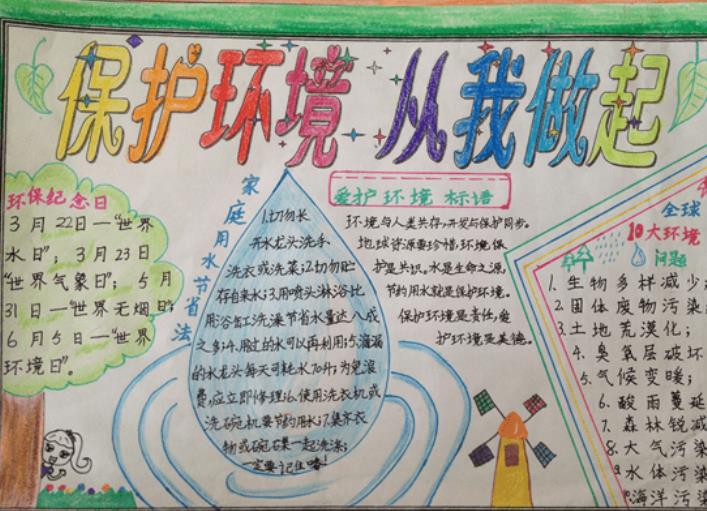 保护环境 从我做起
环保纪念日
3月22日—“世界
水日”；3月23日
“世界气象日”；5月
31日—“世界无烟日”；
6月5日—“世界
环境日”。
家庭用水节省法
1.切勿长
开水龙头洗手、
洗衣或洗菜；2.切勿贮
存自来水；3.用喷头淋浴比
用浴缸洗澡节省水量达八成
之多；4.用过的水可以再利用；5.滴漏
的水龙头每天可耗水70升；为免浪
费，应立即修理；6.使用洗衣机或
洗碗机要节约用水；7.集齐衣
物或碗碟一起洗涤；
一定要记住咯！
爱护环境 标语
环境与人类共存，开发与保护同步。
地球资源要珍惜，环境保
护是共识。水是生命之源，
节约用水就是保护环境。
保护环境是责任，爱
护环境是美德。
全球
10大环境
问题
1.生物多样减少
2.固体废物污染
3.土地荒漠化；
4.臭氧层破坏
5.气候变暖；
6.酸雨蔓延
7.森林锐减
8.大气污染
9.水体污染
海洋污染